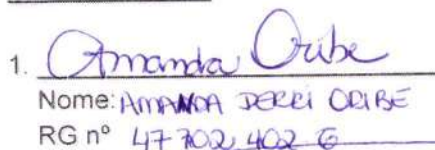 1. Amanda Oribe
Nome: AMANDA DERRI ORIBE
RG nº 47 702 402 6